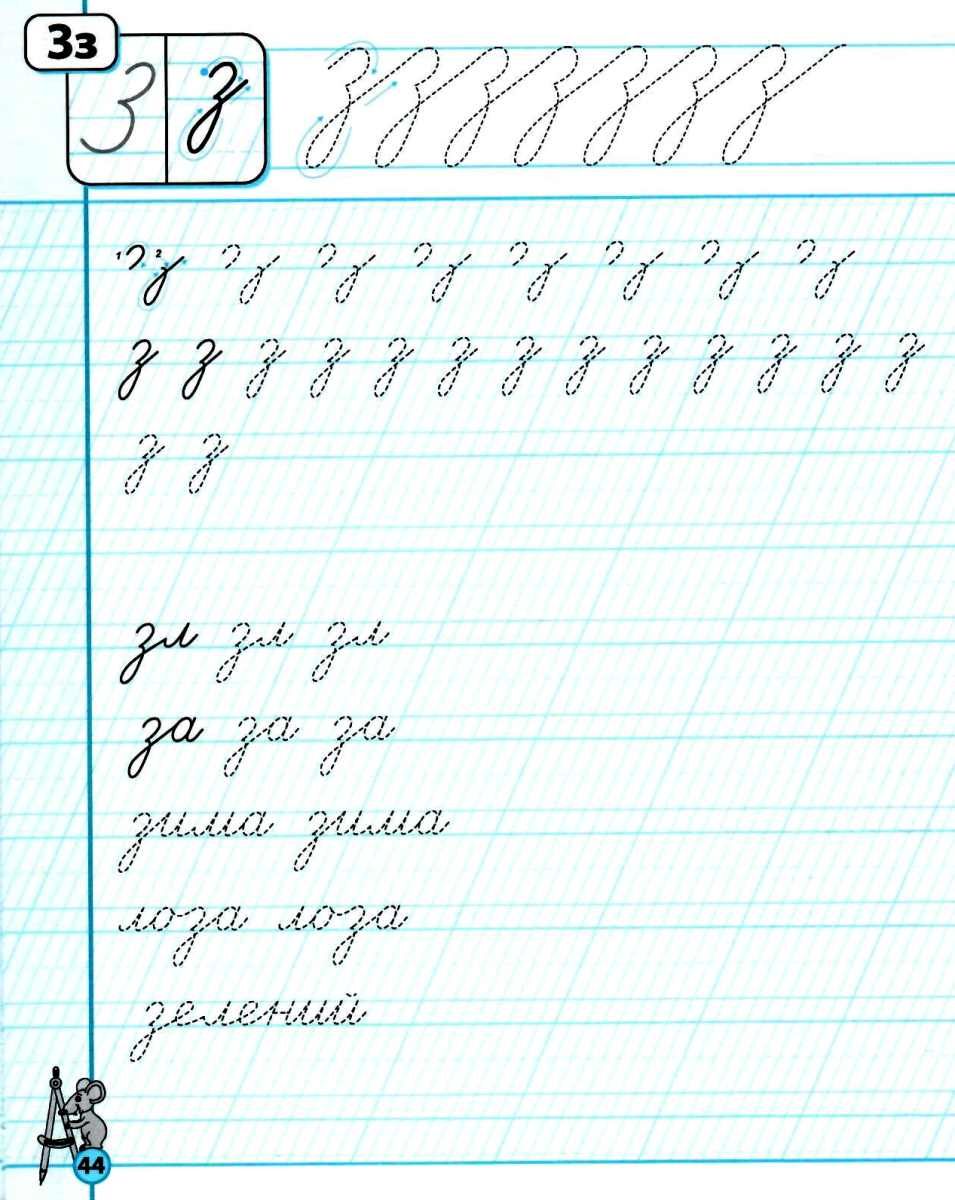 Зз
З з
з з з з з з з
1 2
з з з з з з з з з з з з з
з з
зл зл зл
за за за
зима зима
лоза лоза
зелений
44